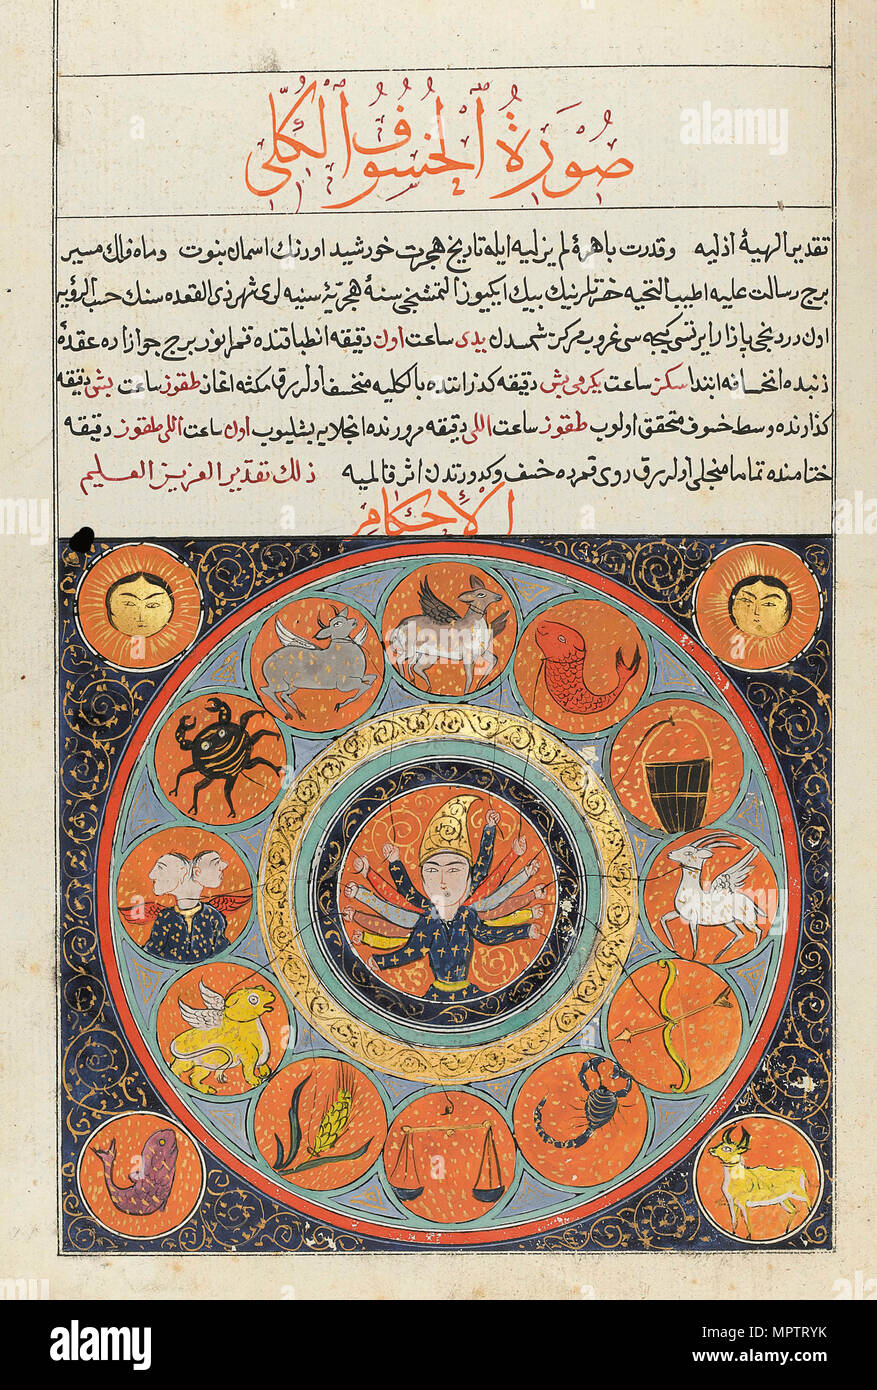 صُورَةُ ٱلخُسُوفُ ٱلكُلِّي
تقديرالهيهٔ اذليه وقدرت باهرهٔ لم يزليه ايله تاريخ هجرت خورشيد اورنك اسمان بنوت وماه فلك مسير
برج رسالت عليه اطيب التحيه حضرتلرينك بيك ايكيوز التمشنجى سنهٔ هجريهٔ سنيه لرى شهر ذى القعده سنك حسب الرؤيه
اون دردنجى پازار ايرتسى كيجه سى غروب مركز شمسدن يدى ساعت اون دقيقه انطباقنده قمرانور برج جوزا ده عقدهٔ
ذنبده انخسافه ابتدا سكز ساعت يكرمى بش دقيقه كذراننده بالكليه منخسف اوله رق مكثه اغاز طقوز ساعت بش دقيقه
كذارنده وسط خسوف متحقق اولوب طقوز ساعت اللى دقيقه مرورنده انجلايه بشليوب اون ساعت اللى طقوز دقيقه
ختامنده تماما منجلى اوله رق روى قمرده خسف وكدورتدن اثر قالميه ذلك تقدير العزيز العليم
الأحكام
alamy
alamy
alamy
a
a
alamy
Image ID: MPTRYK
www.alamy.com